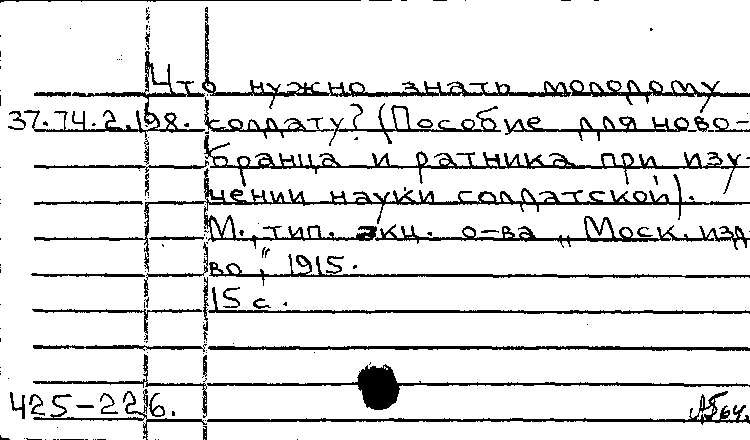 Что нужно знать молодому
37.74.2.198. солдату? (Пособие для ново-
бранца и ратника при изу-
чении науки солдатской).
М., тип. акц. о-ва „Моск. изд-
во", 1915.
15 с.
425-226.